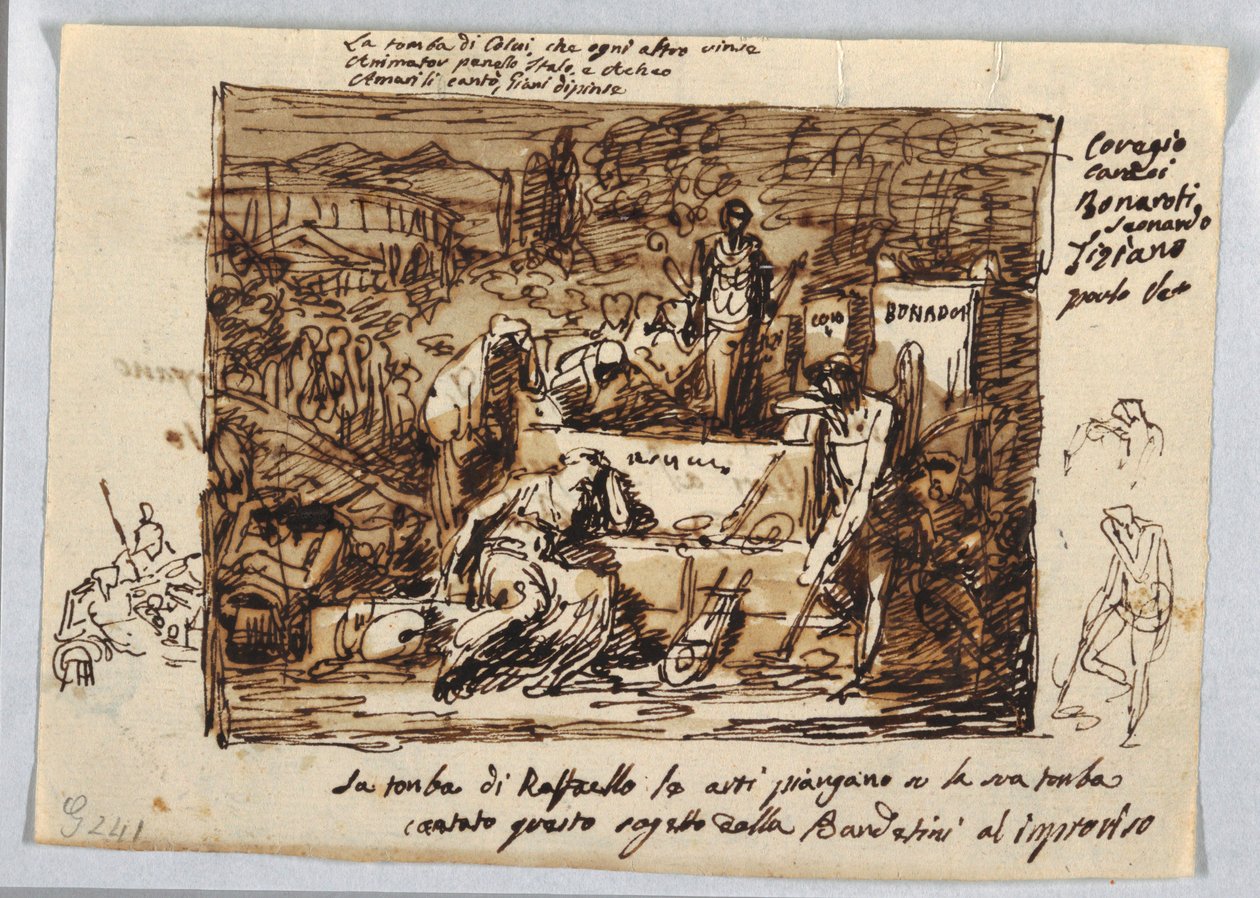 La tomba di Colui, che ogni altro vinse
Animator penello Italo, e Acheo
Amarili cantò, Giani dipinse
Coregio
Bonaroti
Leonardo
Tiziano
BONAROT
La tonba di Raffaello le arti piangano su la sua tonba
cantato questo sogetto dalla Bandetini al improviso
G 241